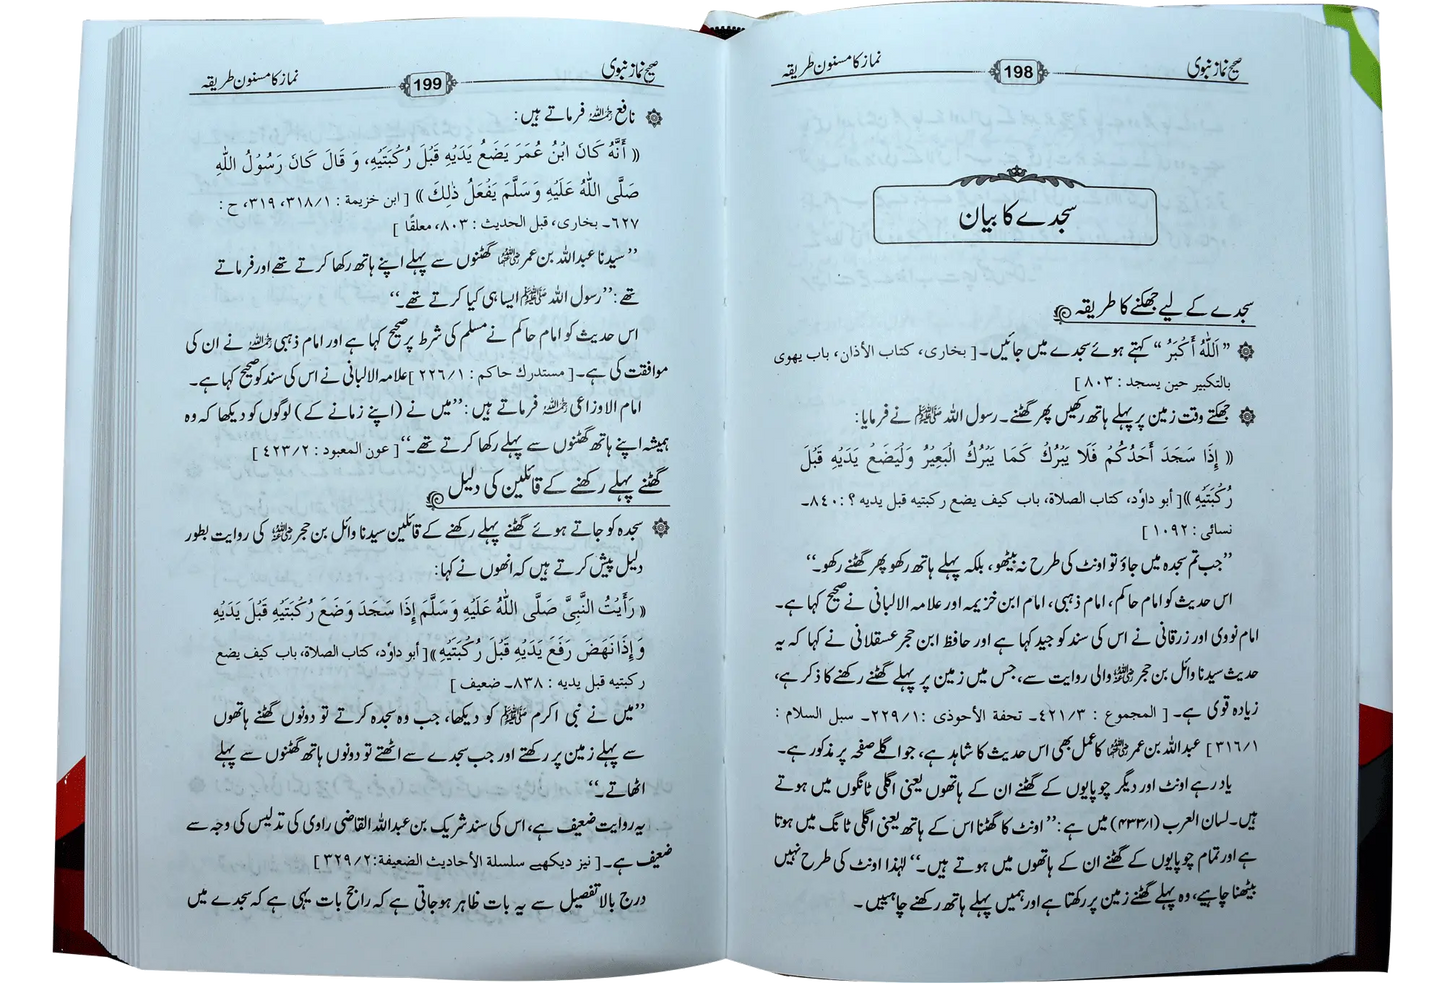 صحیح نماز نبوی 198 نماز کا مسنون طریقہ
سجدے کا بیان
سجدے کے لیے جھکنے کا طریقہ
”اَللّٰهُ أَکْبَرُ“ کہتے ہوئے سجدے میں جائیں۔ [ بخاری، کتاب الأذان، باب یهوی
بالتکبیر حین یسجد : ۸۰۳ ]
جھکتے وقت زمین پر پہلے ہاتھ رکھیں پھر گھٹنے۔ رسول اللہ ﷺ نے فرمایا:
« إِذَا سَجَدَ أَحَدُکُمْ فَلَا یَبْرُكْ کَمَا یَبْرُكُ الْبَعِیْرُ وَلْیَضَعْ یَدَیْهِ قَبْلَ
رُکْبَتَیْهِ »[ أبو داوٗد، کتاب الصلاة، باب کیف یضع رکبتیه قبل یدیه ؟ : ۸۴۰۔
نسائی : ۱۰۹۲ ]
”جب تم سجدہ میں جاؤ تو اونٹ کی طرح نہ بیٹھو، بلکہ پہلے ہاتھ رکھو پھر گھٹنے رکھو۔“
اس حدیث کو امام حاکم، امام ذہبی، امام ابن خزیمہ اور علامہ الالبانی نے صحیح کہا ہے۔
امام نووی اور زرقانی نے اس کی سند کو جید کہا ہے اور حافظ ابن حجر عسقلانی نے کہا کہ یہ
حدیث سیدنا وائل بن حجر رضی اللہ عنہ والی روایت سے، جس میں زمین پر پہلے گھٹنے رکھنے کا ذکر ہے،
زیادہ قوی ہے۔ [ المجموع : ۴۲۱/۳۔ تحفة الأحوذی : ۲۲۹/۱۔ سبل السلام :
۳۱۶/۱ ] عبداللہ بن عمر رضی اللہ عنہما کا عمل بھی اس حدیث کا شاہد ہے، جو اگلے صفحہ پر مذکور ہے۔
یاد رہے اونٹ اور دیگر چوپایوں کے گھٹنے ان کے ہاتھوں یعنی اگلی ٹانگوں میں ہوتے
ہیں۔ لسان العرب (۴۳۳/۱) میں ہے : ”اونٹ کا گھٹنا اس کے ہاتھ یعنی اگلی ٹانگ میں ہوتا
ہے اور تمام چوپایوں کے گھٹنے ان کے ہاتھوں میں ہوتے ہیں۔“ لہٰذا اونٹ کی طرح نہیں
بیٹھنا چاہیے، وہ پہلے گھٹنے زمین پر رکھتا ہے اور ہمیں پہلے ہاتھ رکھنے چاہییں۔
صحیح نماز نبوی 199 نماز کا مسنون طریقہ
نافع رحمہ اللہ فرماتے ہیں:
« أَنَّهٗ کَانَ ابْنُ عُمَرَ یَضَعُ یَدَیْهِ قَبْلَ رُکْبَتَیْهِ، وَ قَالَ کَانَ رَسُوْلُ اللّٰهِ
صَلَّی اللّٰهُ عَلَیْهِ وَسَلَّمَ یَفْعَلُ ذٰلِكَ » [ ابن خزیمة : ۳۱۸/۱، ۳۱۹، ح :
۶۲۷۔ بخاری، قبل الحدیث : ۸۰۳، معلقًا ]
”سیدنا عبداللہ بن عمر رضی اللہ عنہما گھٹنوں سے پہلے اپنے ہاتھ رکھا کرتے تھے اور فرماتے
تھے : ”رسول اللہ ﷺ ایسا ہی کیا کرتے تھے۔“
اس حدیث کو امام حاکم نے مسلم کی شرط پر صحیح کہا ہے اور امام ذہبی رحمہ اللہ نے ان کی
موافقت کی ہے۔ [ مستدرك حاکم : ۲۲۶/۱ ] علامہ الالبانی نے اس کی سند کو صحیح کہا ہے۔
امام الاوزاعی رحمہ اللہ فرماتے ہیں : ”میں نے (اپنے زمانے کے) لوگوں کو دیکھا کہ وہ
ہمیشہ اپنے ہاتھ گھٹنوں سے پہلے رکھا کرتے تھے۔“ [ عون المعبود : ۴۲۳/۲ ]
گھٹنے پہلے رکھنے کے قائلین کی دلیل
سجدہ کو جاتے ہوئے گھٹنے پہلے رکھنے کے قائلین سیدنا وائل بن حجر رضی اللہ عنہ کی روایت بطور
دلیل پیش کرتے ہیں کہ انھوں نے کہا:
« رَأَیْتُ النَّبِیَّ صَلَّی اللّٰهُ عَلَیْهِ وَسَلَّمَ إِذَا سَجَدَ وَضَعَ رُکْبَتَیْهِ قَبْلَ یَدَیْهِ
وَ إِذَا نَهَضَ رَفَعَ یَدَیْهِ قَبْلَ رُکْبَتَیْهِ »[ أبو داوٗد، کتاب الصلاة، باب کیف یضع
رکبتیه قبل یدیه : ۸۳۸۔ ضعیف ]
”میں نے نبی اکرم ﷺ کو دیکھا، جب وہ سجدہ کرتے تو دونوں گھٹنے ہاتھوں
سے پہلے زمین پر رکھتے اور جب سجدے سے اٹھتے تو دونوں ہاتھ گھٹنوں سے پہلے
اٹھاتے۔“
یہ روایت ضعیف ہے، اس کی سند شریک بن عبداللہ القاضی راوی کی تدلیس کی وجہ سے
ضعیف ہے۔ [ نیز دیکھیے سلسلة الأحادیث الضعیفة: ۳۲۹/۲ ]
درج بالا تفصیل سے یہ بات ظاہر ہو جاتی ہے کہ راجح بات یہی ہے کہ سجدے میں